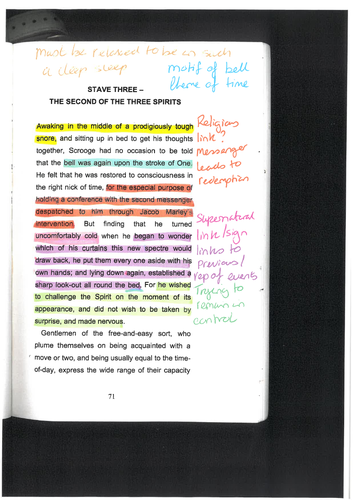 must be relaxed to be in such
a deep sleep
motif of bell
theme of time
STAVE THREE –
THE SECOND OF THE THREE SPIRITS
Awaking in the middle of a prodigiously tough
snore, and sitting up in bed to get his thoughts
together, Scrooge had no occasion to be told
that the bell was again upon the stroke of One.
He felt that he was restored to consciousness in
the right nick of time, for the especial purpose of
holding a conference with the second messenger
despatched to him through Jacob Marley's
intervention. But finding that he turned
uncomfortably cold when he began to wonder
which of his curtains this new spectre would
draw back, he put them every one aside with his
own hands; and lying down again, established a
sharp look-out all round the bed. For he wished
to challenge the Spirit on the moment of its
appearance, and did not wish to be taken by
surprise, and made nervous.
Gentlemen of the free-and-easy sort, who
plume themselves on being acquainted with a
move or two, and being usually equal to the time-
of-day, express the wide range of their capacity
71
Religious
link?
Messenger
leads to
redemption
Supernatural
link/sign
links to
previous/
rep of events
Trying to
remain in
control